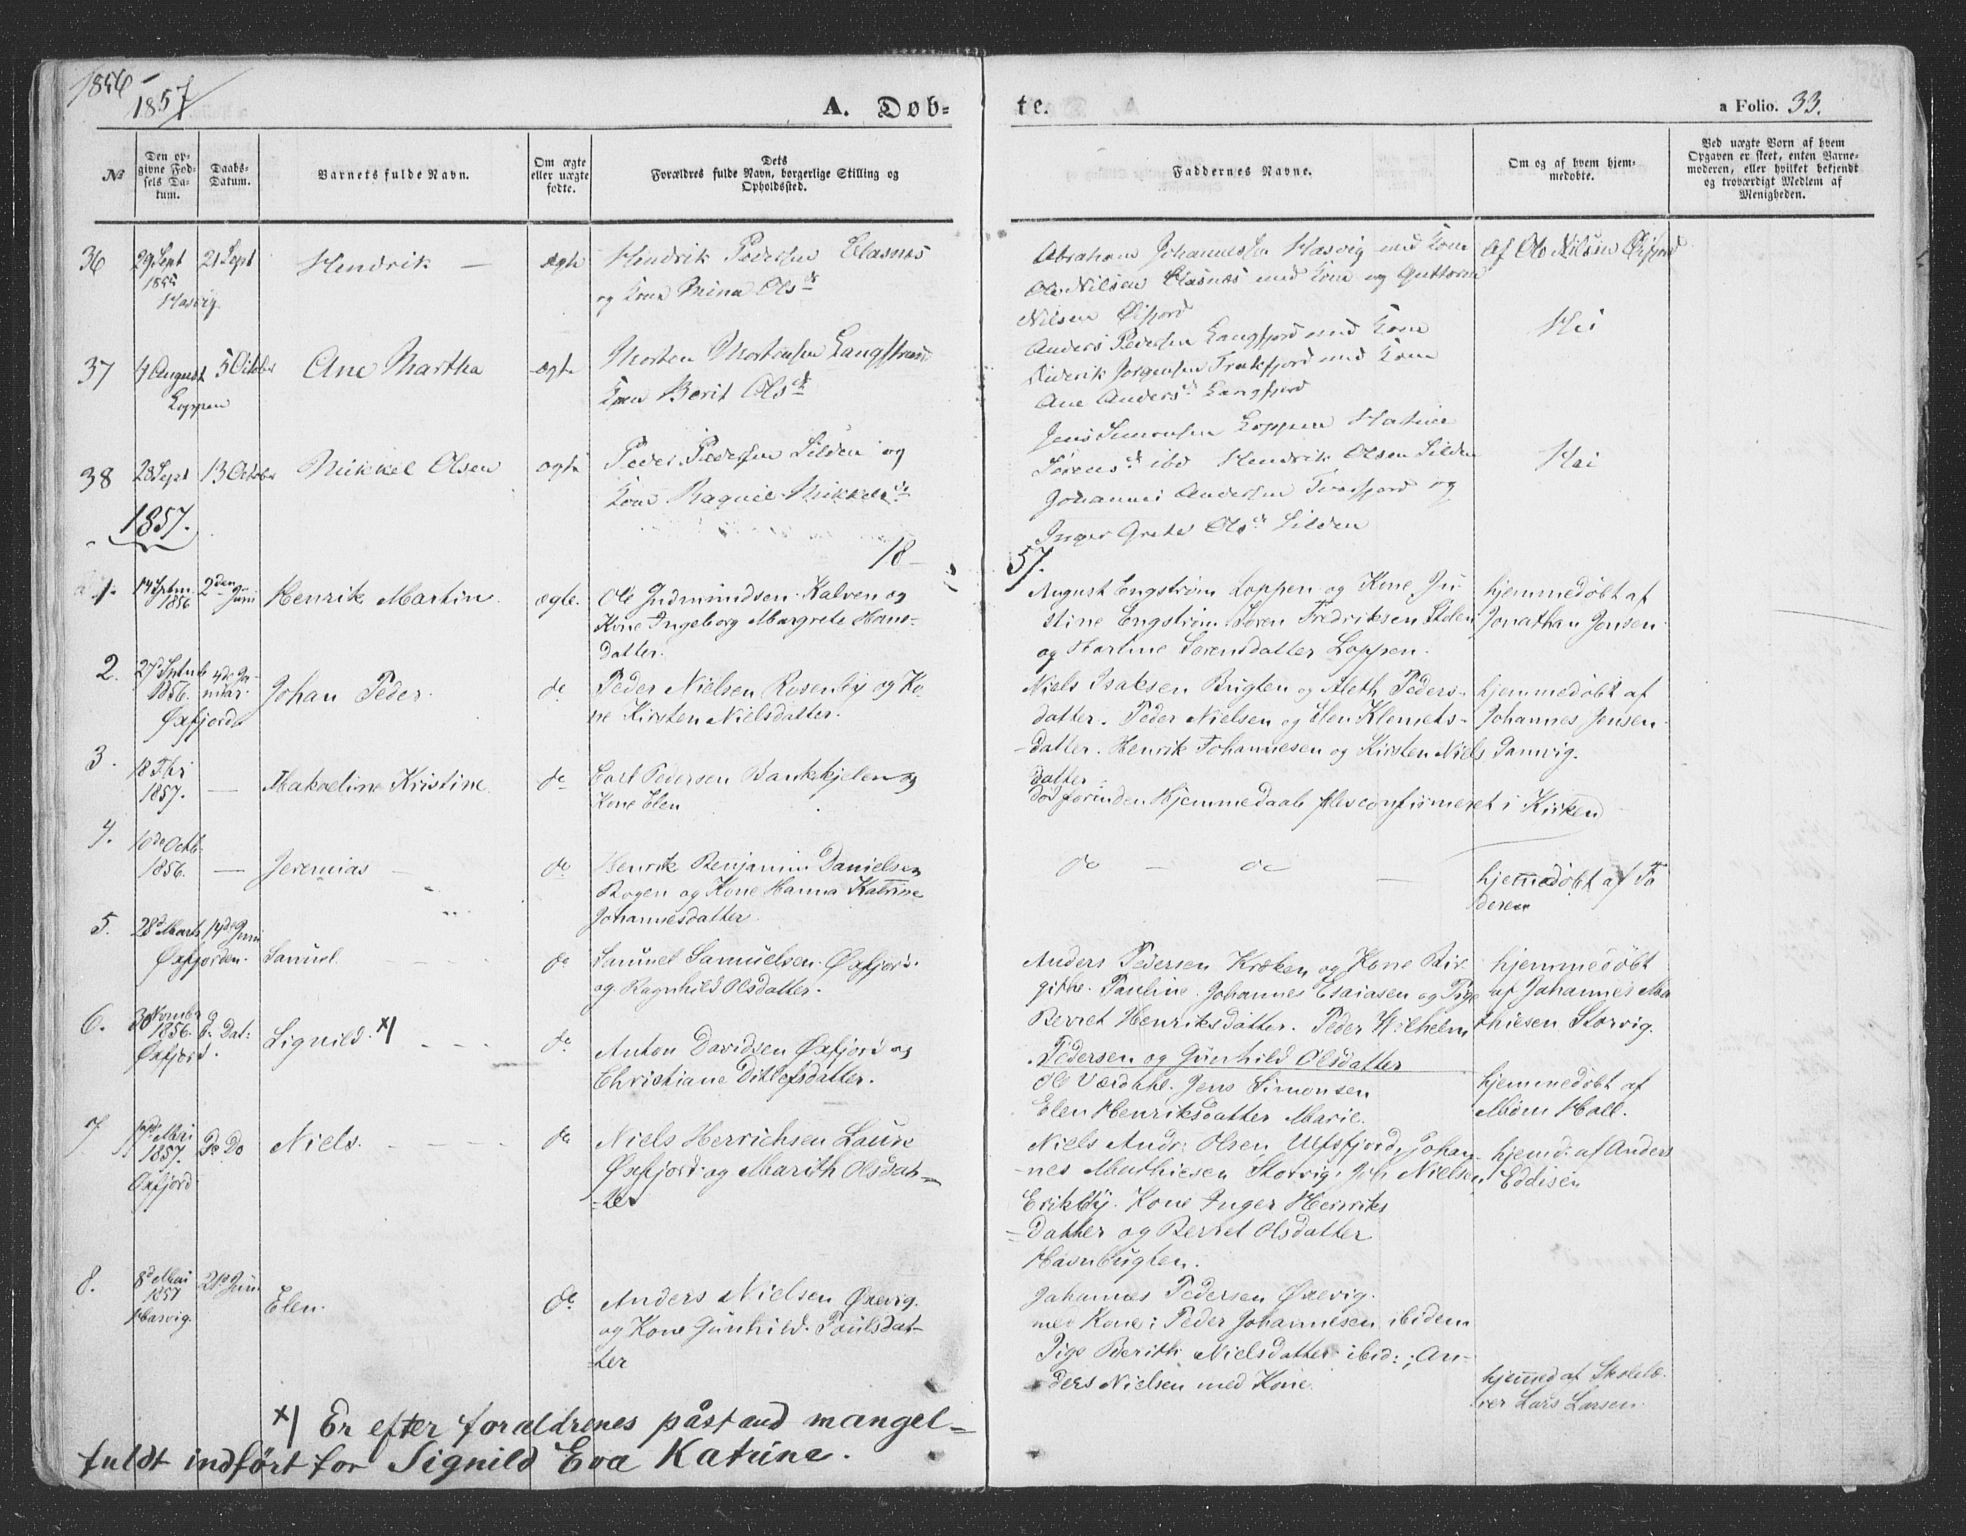 1856 – 1857
A. Døb-
te.
a Folio. 33.
No
Den op-
givne Fød-
sels Da-
tum.
Daabs-
Datum.
Barnets fulde Navn.
Om ægte
eller uægte
fødte.
Dets
Forældres fulde Navn, borgerlige Stilling og
Opholdssted.
Faddernes Navne.
Om og af hvem hjem-
medøbte.
Ved uægte Børn af hvem
Opgaven er skeet, enten Barne-
moderen, eller hvilket bekjendt
og troværdigt Medlem af
Menigheden.
36
29 Sept
1855
Hasvig
21 Sept
Hendrik —
ægte
Hendrik Pedersen
og Kone Nina Olsdr
Abraham Johannessen Hasvig med Kone
Ole Nilsen med Kone og Guttorm
Nilsen Øxfjord
Af Ole Nilsen Øxfjord
37
4 August
Loppen
5 October
Ane Martha
ægte
Morten Mortensen Langstrand
Kone Berit Olsdr
Anders Pedersen Langfjord med Kone
Diderik Jørgensen med Kone
Ane Andersdr Langfjord
Nei
38
28 Sept
13 October
Mikkel Olsen
ægte
Peder Pedersen Silden og
Kone Ragnel Mikkelsdr
Jens Simonsen Loppen
Sørensdr ibd Hendrik Olsen Silden
Johannes Andersen og
Inger Grete Olsdr Silden
Nei
1857.
18–
57.
1.
14 Sptm.
1856
2den Juni
Henrik Martin.
ægte.
Ole Gudmundsen Kalven og
Kone Ingeborg Margrete Hans-
datter.
August Engstrøm Loppen og Kone Ju-
stine Engstrøm Søren Fredriksen
og Martine Sørensdatter Loppen.
hjemmedøbt af
Jonathan Jensen
2.
27d Sptmb
1856.
Øxfjord
4de Ja-
nuar
Johan Peder.
do
Peder Nielsen Rosenby og Ko-
ne Kirsten Nielsdatter.
Niels Isaksen Bugten og Aleth Peders-
datter. Peder Nielsen og Elen Klemets-
datter. Henrik Johannesen og Kirsten Niels
datter
hjemmedøbt af
Johannes Jensen
Danvig.
3.
18 Fbr
1857.
—
Makreline Kristine
do
Carl Pedersen Bankekjelen og
Kone Elen
død forinden Hjemmedaab blev confirmeret i Kirken
4.
10de Octb.
1856.
—
Jeremias —
do
Henrik Benjamin Danielsen
Bogen og Kone Hanna Katrine
Johannesdatter
do – do —
hjemmedøbt af Fa
deren
5.
28d Marts
Øxfjorden.
14de Juni
Samuel.
do
Samuel Samuelsen. Øxfjord.
og Ragnhild Olsdatter.
Anders Pedersen Kroken og Kone Bir-
githe. Pauline. Johannes Esaiasen og Pige
Berret Henriksdatter. Peder Wilhelm
Pedersen og Gunhild Olsdatter
hjemmedøbt
af Johannes Ma
thiesen Storvig.
6.
30 Novmbr
1856.
Øxfjord
do Dat:
Signild. x)
do
Anton Davidsen Øxfjord og
Christiane Ditlefsdatter.
Ole Værdahl. Jens Simonsen
Elen Henriksdatter Marie.
hjemmedøbt af
Mdm Holl.
7
Mai
1857.
Øxfjord
Do Do
Niels.
do
Niels Herrichsen
Øxfjord og Marith Olsdat-
-ter
Niels Andr: Olsen Ulfsfjord, Johan-
-nes Mathiesen Storvig, Joh Nielsen
Erikby. Kone Inger Henriks
-Datter og Berret Olsdatter
Havnbugten.
hjemd: af Anders
Eddisen
8.
8d Mai
1857
Hasvig.
21 Juni
Elen.
do
Anders Nielsen Øxevig.
og Kone Gunhild. Poulsdat-
-ter
Johannes Pedersen Øxevig.
med Kone; Peder Johannesen ibidem
Pige Berith Nielsdatter ibid:; An-
ders Nielsen med Kone.
hjemmed af Skolelæ-
rer Lars Larsen
x) Er efter forældrenes påstand mangel-
fuldt indført for Signild Eva Katrine.